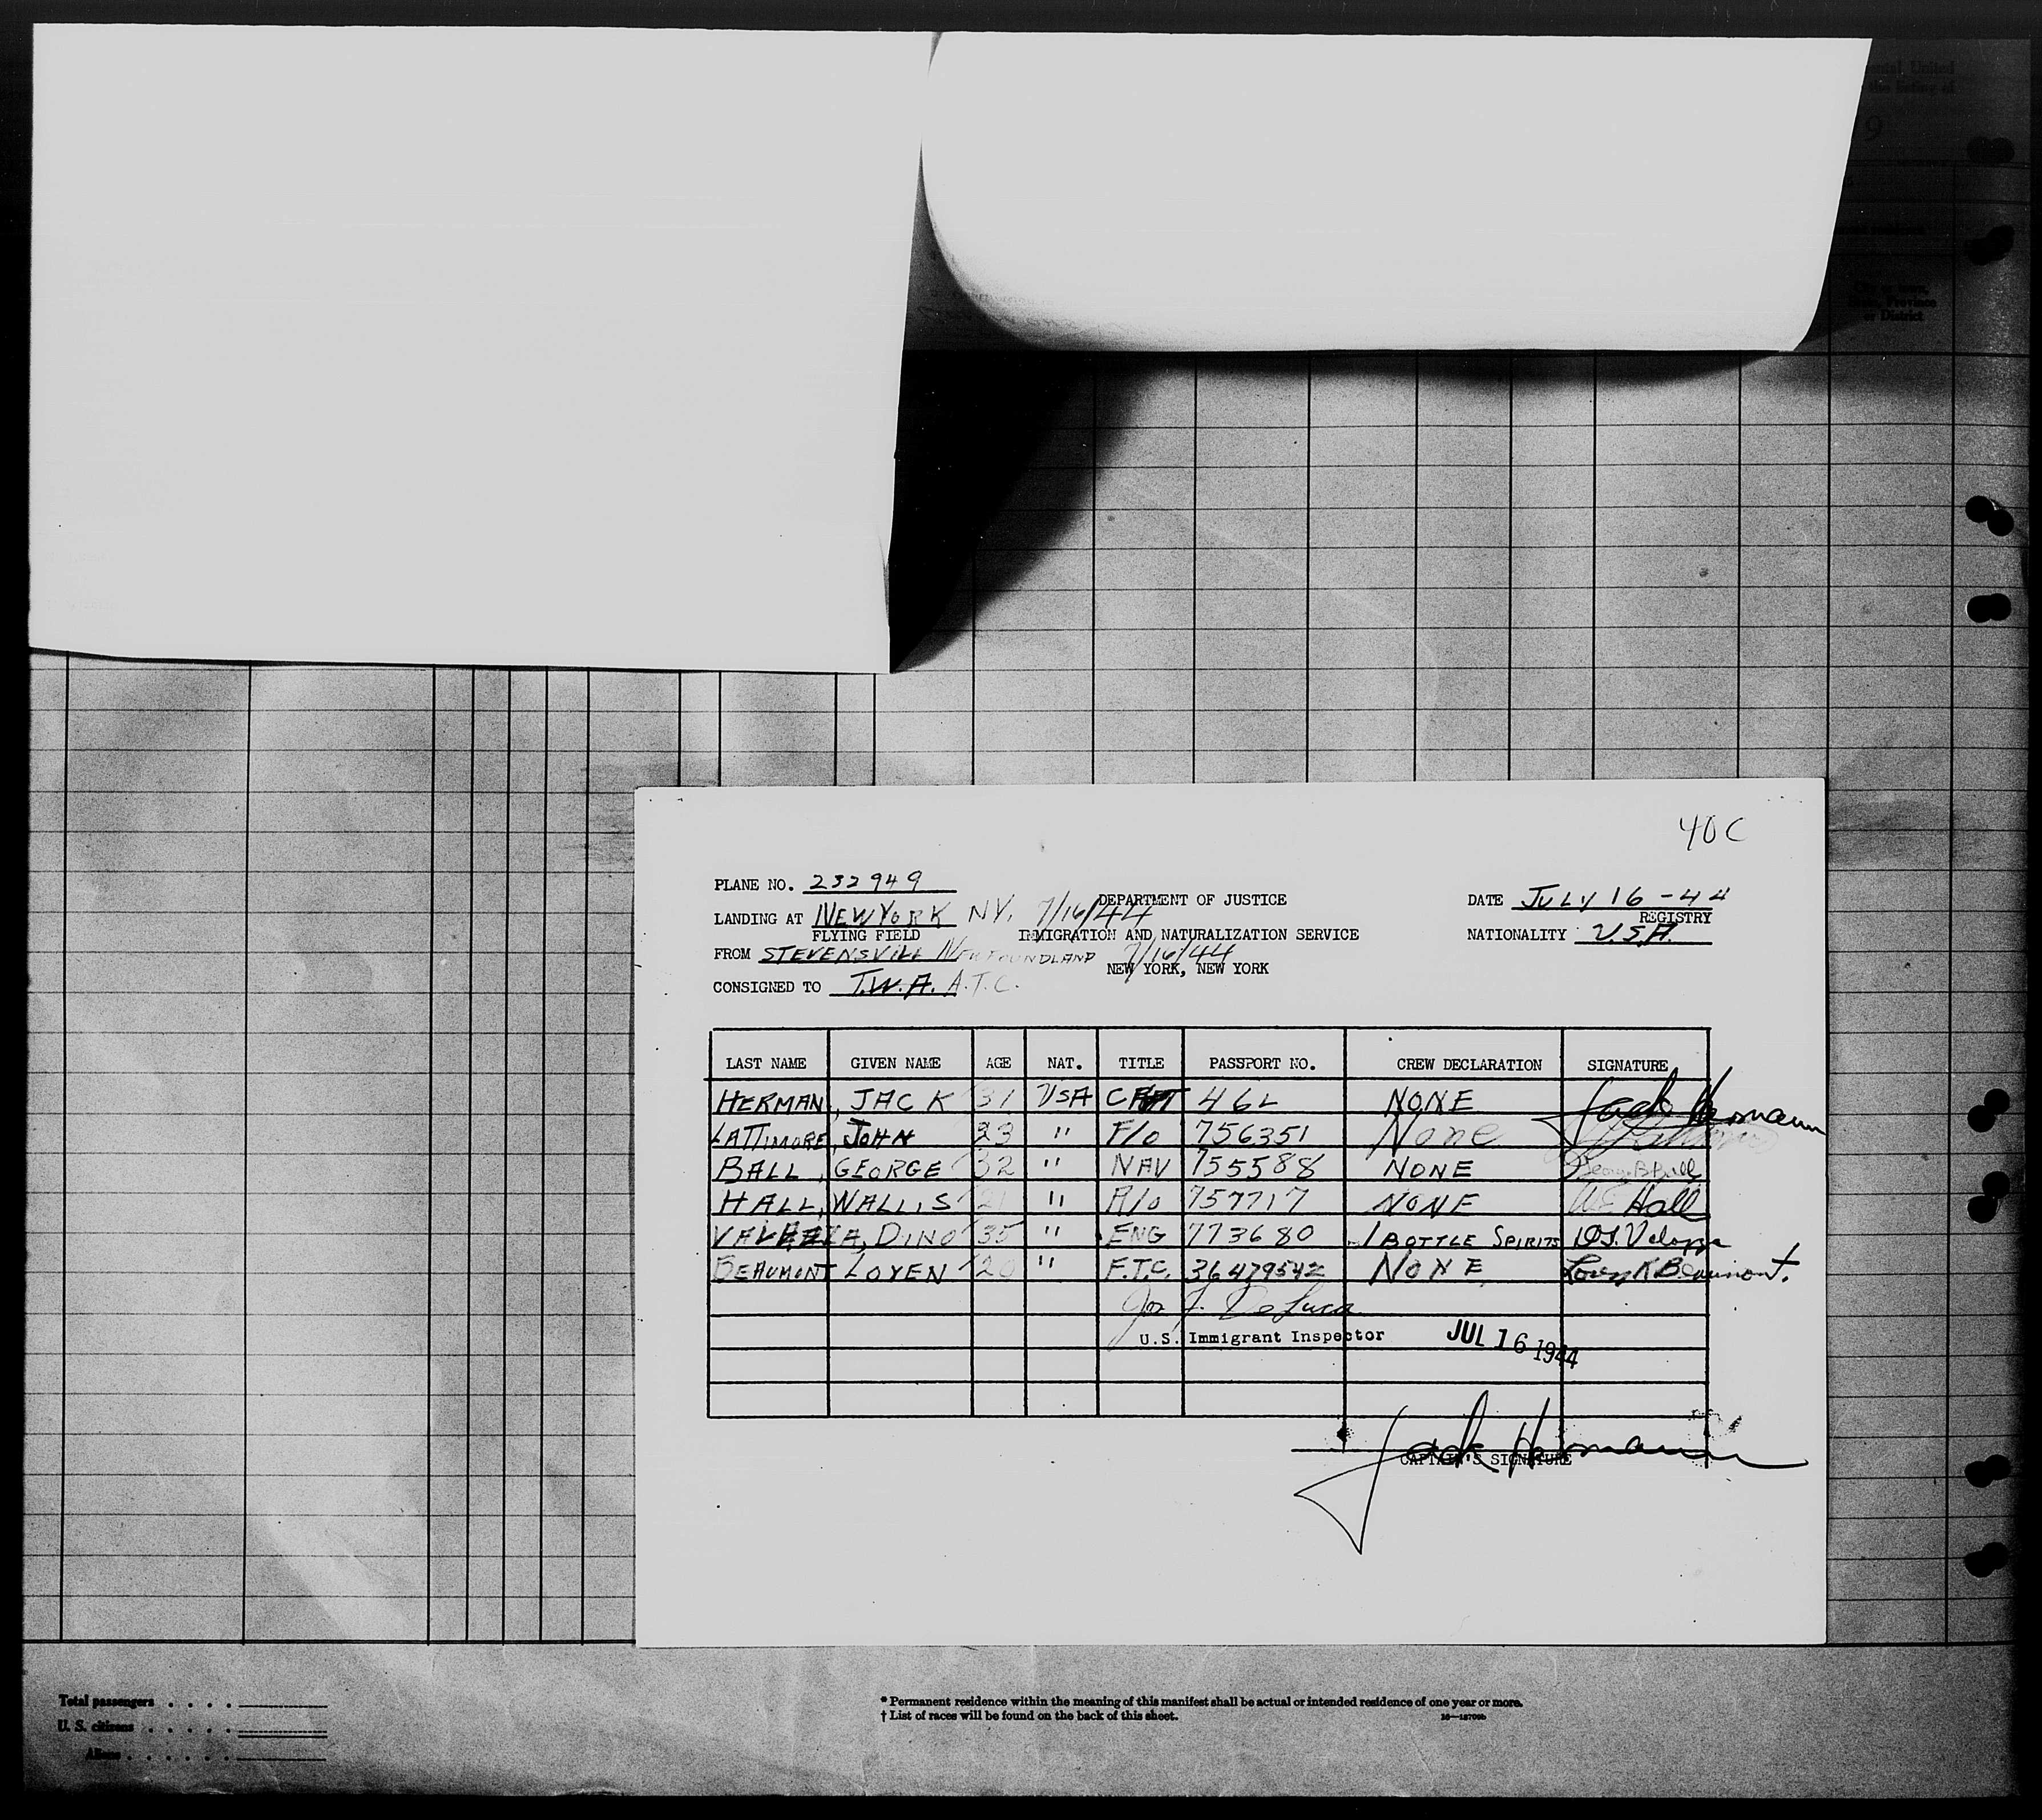 City or town,
State, Province
or District
40C
PLANE NO. 232949
LANDING AT NEW YORK NY. 7/16/44
FLYING FIELD
FROM STEVENSVILL NEWFOUNDLAND 7/16/44
CONSIGNED TO T.W.A. A.T.C.
DEPARTMENT OF JUSTICE
IMMIGRATION AND NATURALIZATION SERVICE
NEW YORK, NEW YORK
DATE JULY 16 - 44
REGISTRY
NATIONALITY U.S.A.
LAST NAME GIVEN NAME AGE NAT. TITLE PASSPORT NO. CREW DECLARATION SIGNATURE
HERMAN, JACK 31 USA CAPT 46L NONE Jack Hermann
LATTIMORE, JOHN 23 " F/O 756351 None
BALL, GEORGE 32 " NAV 755588 NONE George B Ball
HALL, WALLIS 21 " R/O 757717 NONE W E Hall
DINO 35 " ENG 773680 1 BOTTLE SPIRITS
BEAUMONT LOYEN 20 " F.T.C. 36479542 NONE Loren K Beaumont.
Jos F. DeLuca
U.S. Immigrant Inspector JUL 16 1944
Jack Hermann
CAPTAIN'S SIGNATURE
Total passengers
U. S. citizens
Aliens
* Permanent residence within the meaning of this manifest shall be actual or intended residence of one year or more.
† List of races will be found on the back of this sheet.